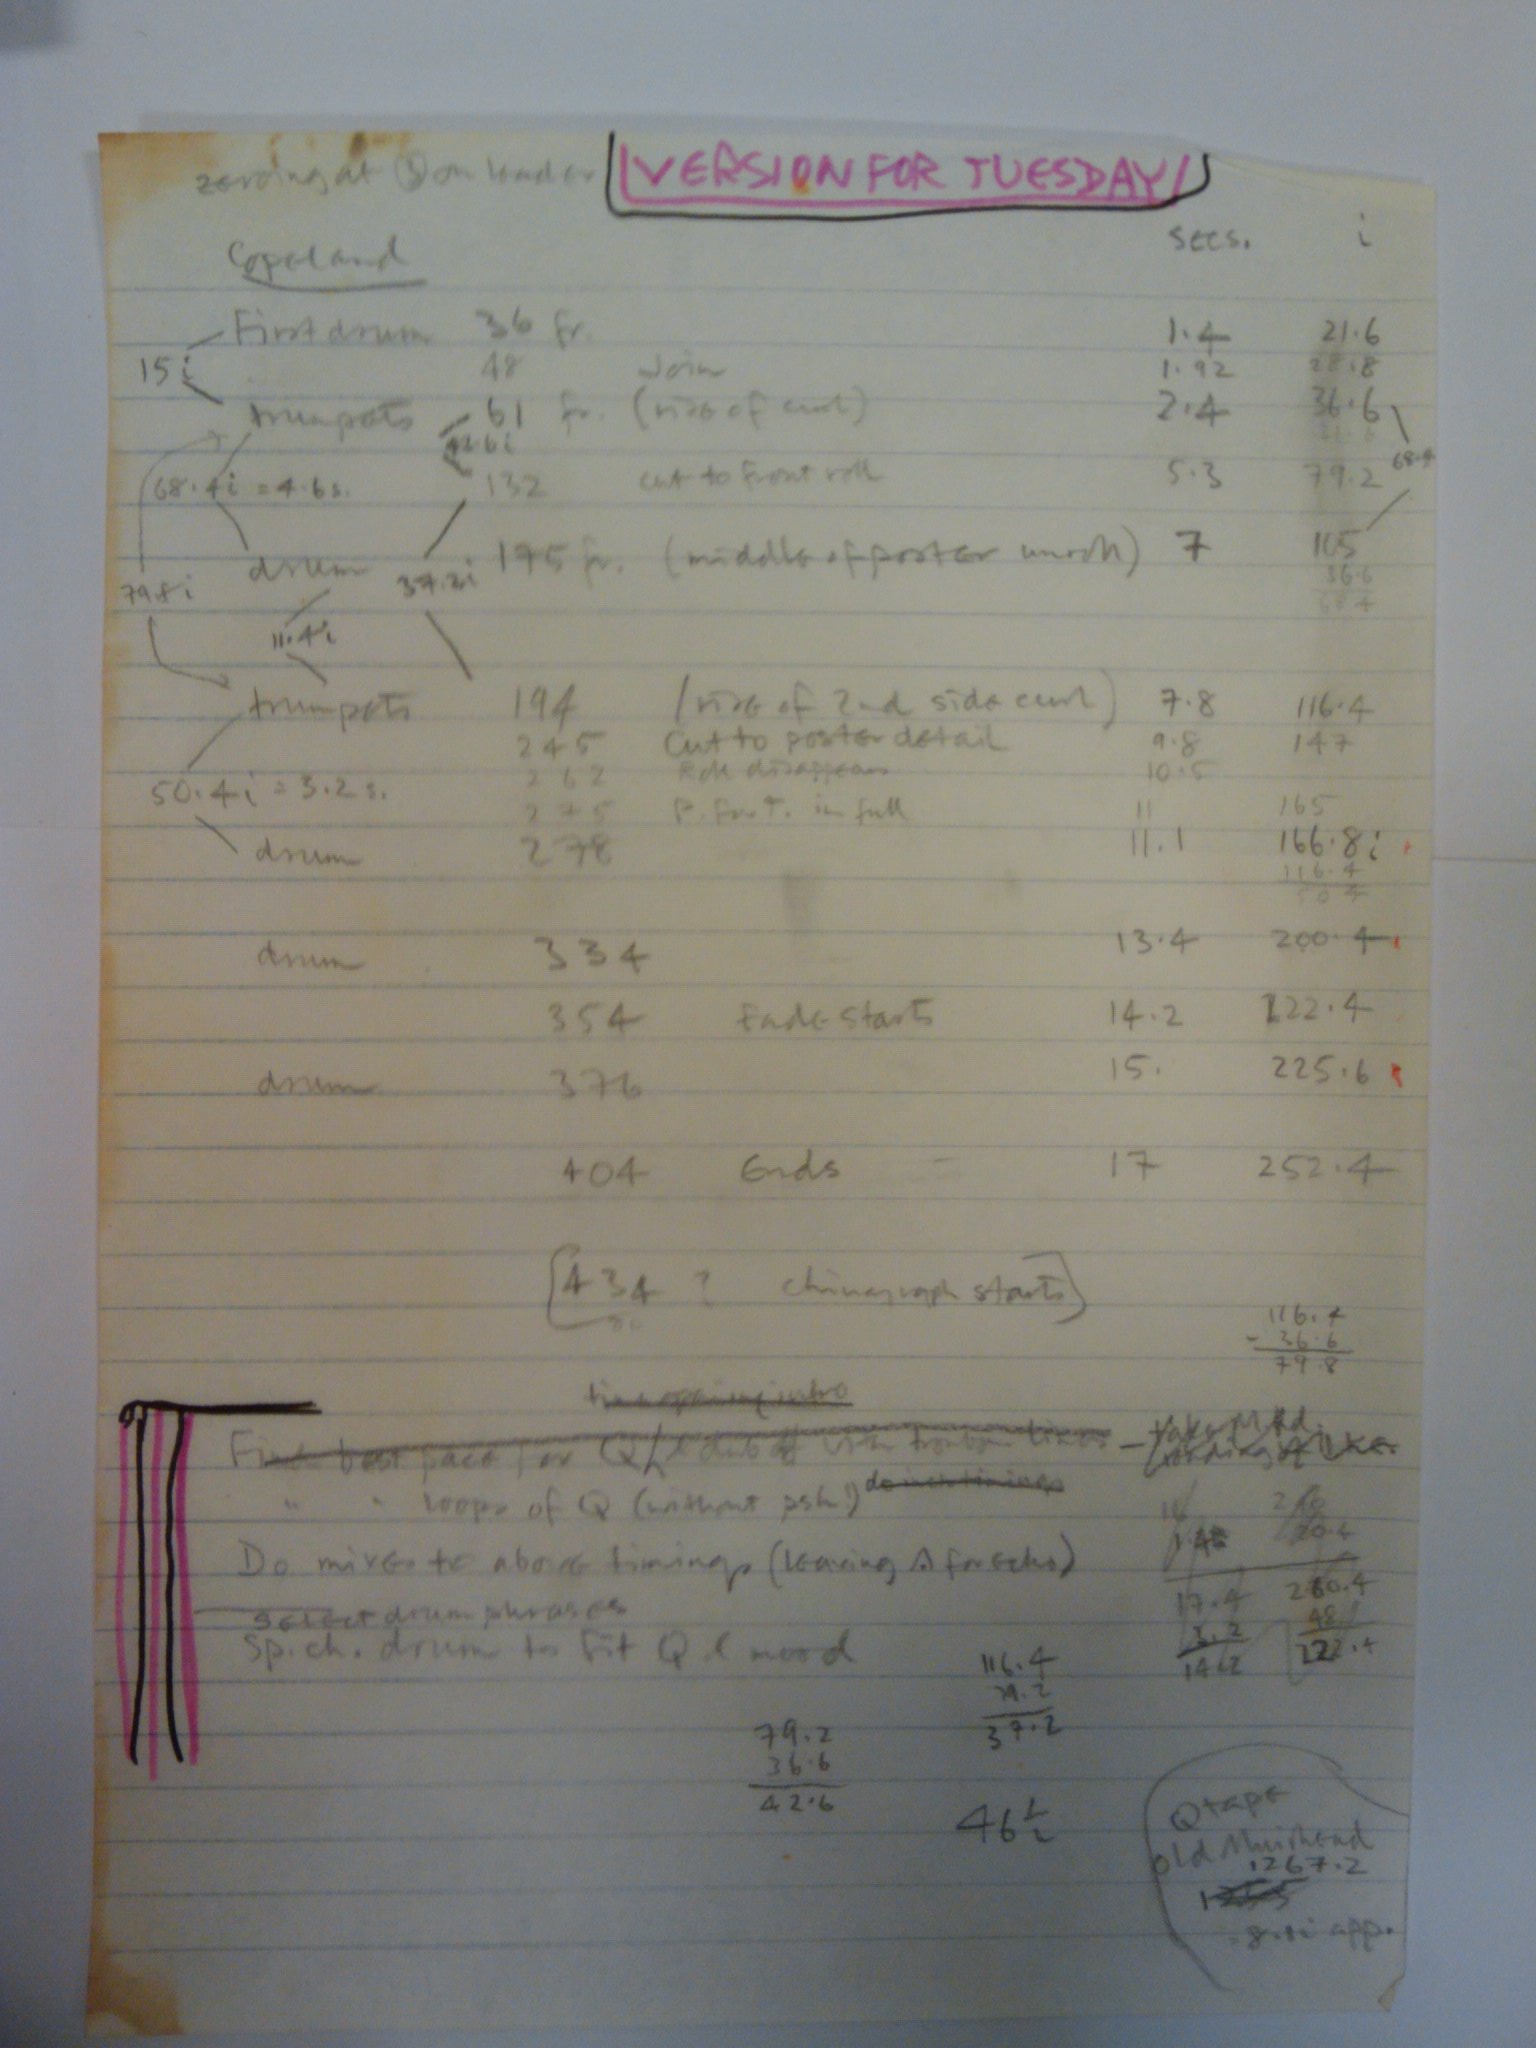 zeroing at ③ on leader VERSION FOR TUESDAY
Copeland secs. i
First drum 36 fr. 1.4 21.6
15 i 48 Join 1.92 28.8
trumpets 61 fr. (rise of curl) 2.4 36.6
42.6 i
68.4 i = 4.6 s. 132 cut to front roll 5.3 79.2 68.4
drum 175 fr. (middle of poster unroll) 7 105
79.8 i 37.2 i 36.6
68.4
11.4 i
trumpets 194 (rise of 2nd side curl) 7.8 116.4
245 Cut to poster detail 9.8 147
262 Roll disappears 10.5
50.4 i = 3.2 s. 275 P. for T. in full 11 165
drum 278 11.1 166.8 i
116.4
50.4
drum 334 13.4 200.4
354 Fade starts 14.2 222.4
drum 376 15. 225.6
404 Ends 17 252.4
[434 ? chinagraph starts]
116.4
- 36.6
79.8
Find best pace for Q
" " loops of Q (without psh!)
Do mixes to above timings (leaving for echo)
select drum phrases
Sp. ch. drum to fit Q. & mood
17.4 260.4
3.2 48
14.2 222.4
116.4
79.2
37.2
79.2
36.6
42.6
46 i
Q tape
Old Muirhead
1267.2
= 8.8i app.